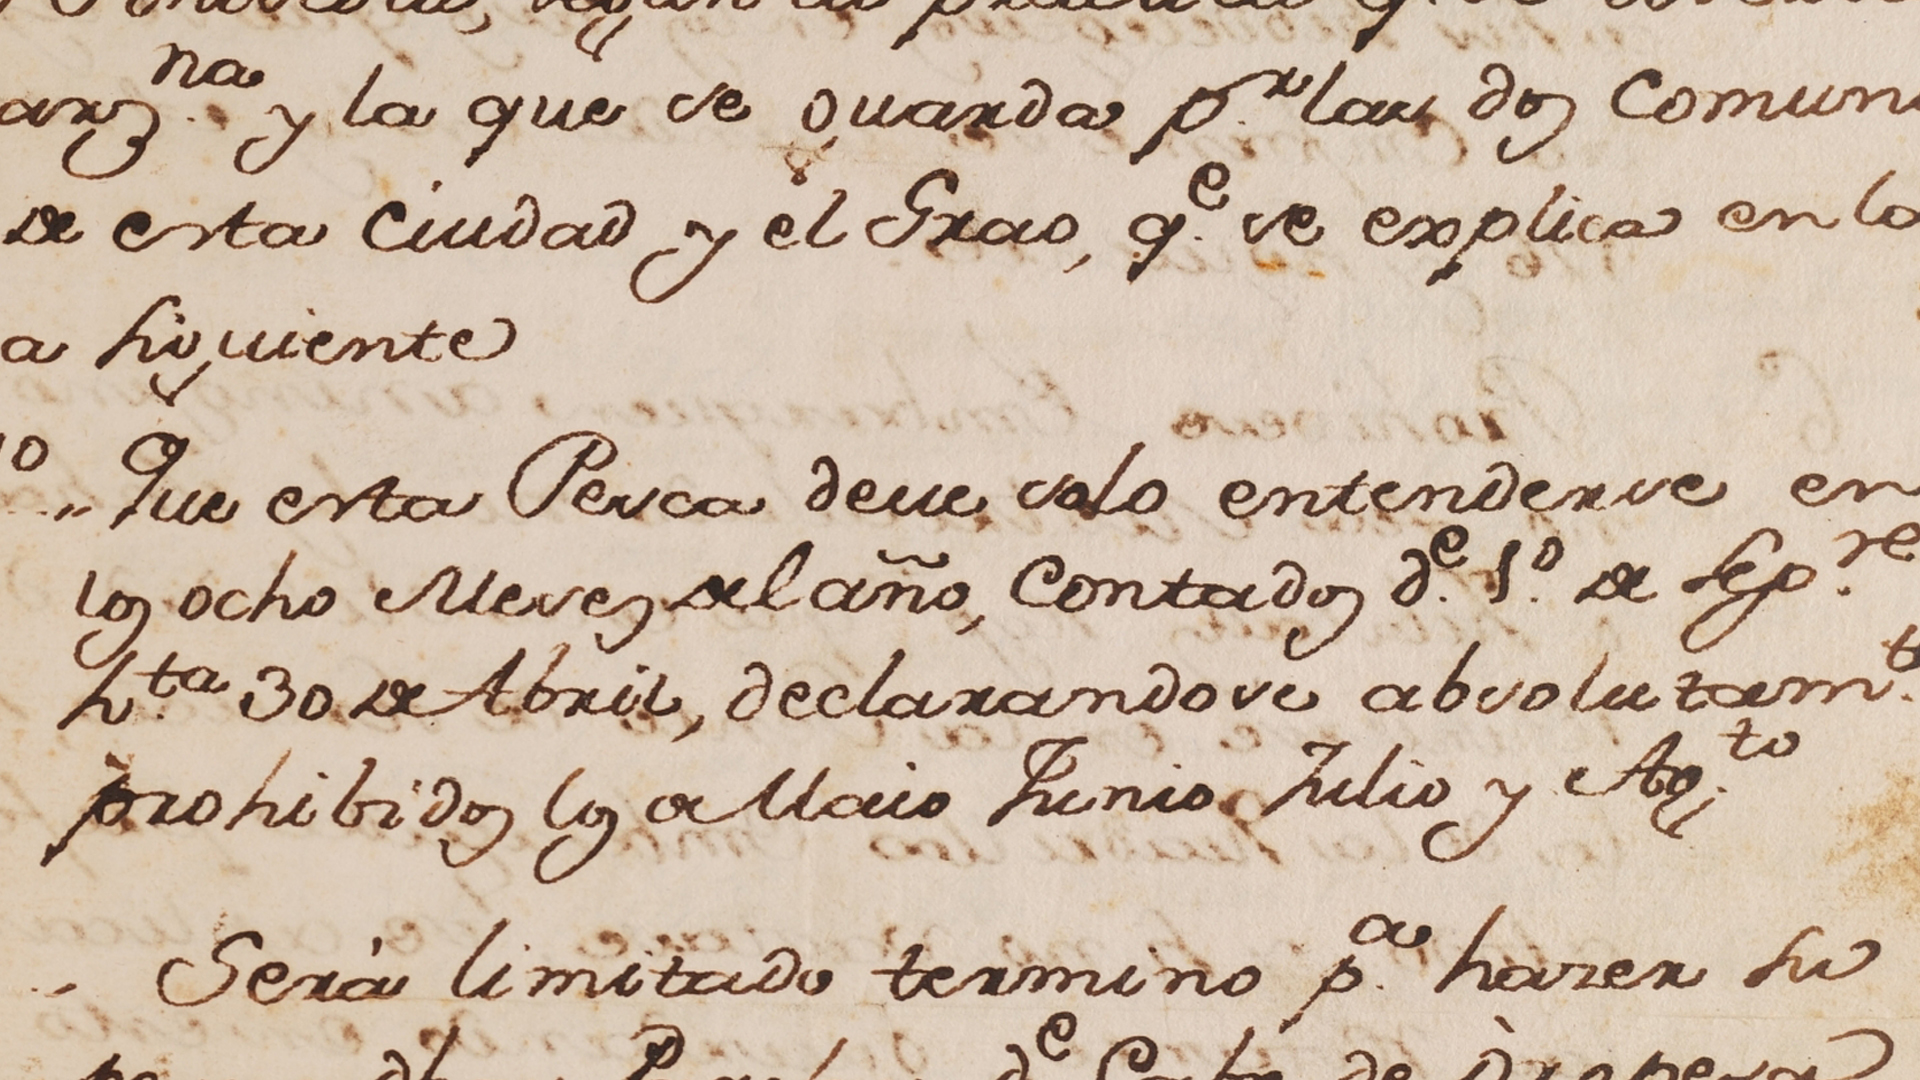 según la practica q.e se
y la que se guarda p.r las dos Comuni
de esta Ciudad y el Grao, q.e se explica en lo
a siguiente
1o „ Que esta Pesca deue solo entenderse en
los ocho Meses del año, Contados d.e 1.o de Sep.re
h.ta 30 de Abril, declarandose absolutam.te
prohibidos los de Maio Junio Julio y Ag.to
Será limitado termino p.a hazer su
d.e Cabo de Oropesa